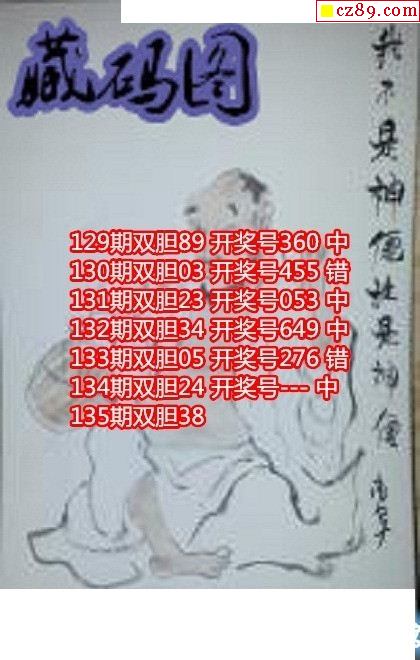 cz89.com
藏码图
129期双胆89 开奖号360 中
130期双胆03 开奖号455 错
131期双胆23 开奖号053 中
132期双胆34 开奖号649 中
133期双胆05 开奖号276 错
134期双胆24 开奖号--- 中
135期双胆38
我不是神僊谁是神僊